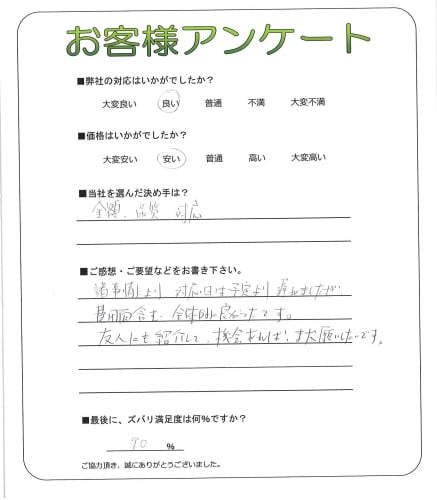 お客様アンケート
■弊社の対応はいかがでしたか？
大変良い 良い 普通 不満 大変不満
■価格はいかがでしたか？
大変安い 安い 普通 高い 大変高い
■当社を選んだ決め手は？
金額、品質 対応
■ご感想・ご要望などをお書き下さい。
諸事情により 対応日は予定より 遅れましたが
費用面含む 全体的に良かったです。
友人にも紹介して、機会あれば、また願いたいです。
■最後に、ズバリ満足度は何％ですか？
90 %
ご協力頂き、誠にありがとうございました。